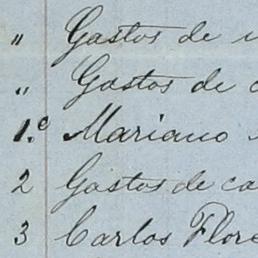 " Gastos de
" Gastos de
1.º Mariano
2 Gastos de ca
3 Carlos Flore